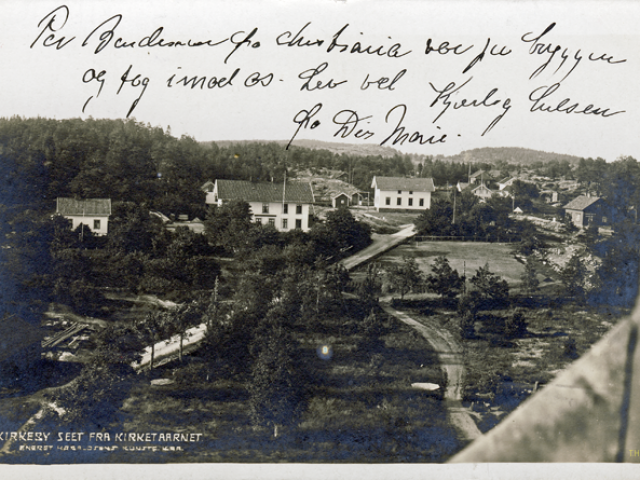 Per Bendixsen fra Christiania var på bryggen
og tog imod os. Lev vel Kjærlig hilsen
fra Din Marie.
KIRKEBY SEET FRA KIRKETAARNET